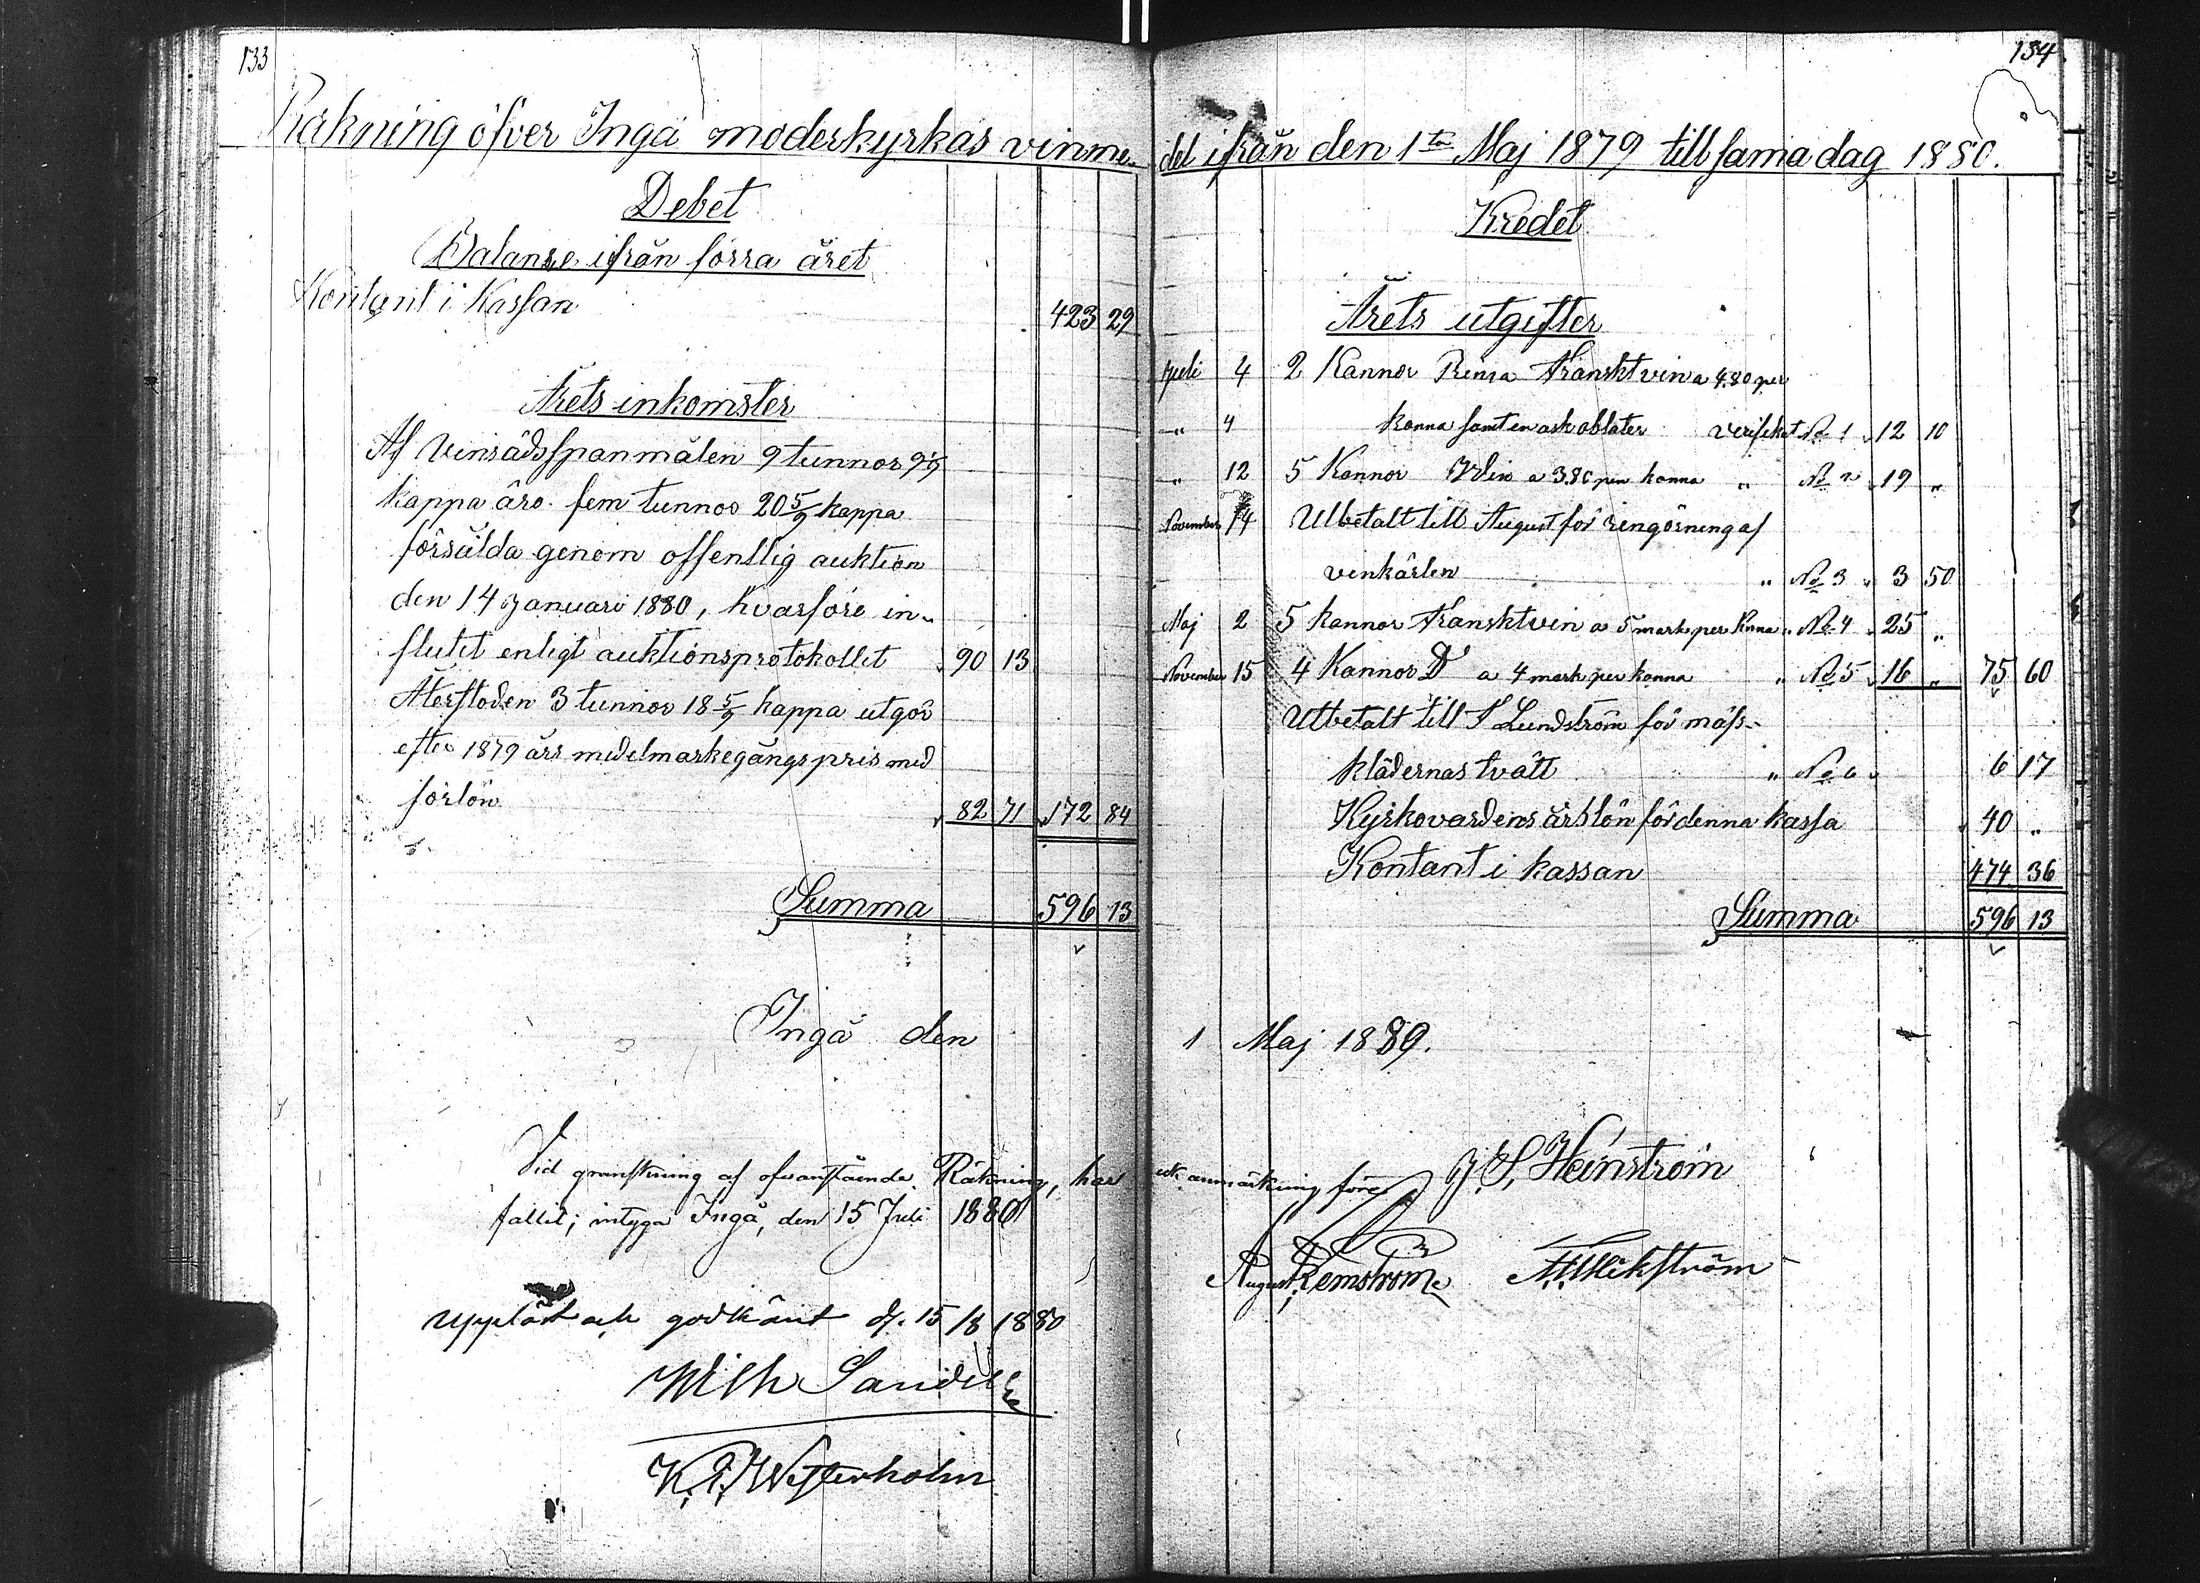 133
Räkning öfver Ingå moderkyrkas vinme-
Debet
Balanse ifrån förra året
Kontant i Kassan 423 29
Årets inkomster
Af Vinsädsspanmålen 9 tunnor 9 1/9
kappa äro fem tunnor 20 5/9 kappa
försålda genom offentlig auktion
den 14 Januari 1880, hvarföre in-
flutit enligt auktionsprotokollet 90 13
Återstoden 3 tunnor 18 5/9 kappa utgör
efter 1879 års medelmarkegångspris med
förlön 82 71 172 84
Summa 596 13
Ingå den
Vid granskning af ofvanstående Räkning, har
fallit; intyga Ingå, den 15 Juli 1880
Uppläst och godkänt d. 15/8 1880
Wilh Sandell
K. J. Westerholm
134
del ifrån den 1ta Maj 1879 till sama dag 1880.
Kredet
Årets utgifter
Juli 4 2 Kannor Rena Fransktvin a 4.80 per
" 4 kanna samt en ask oblater verifikat No 1 12 10
" 12 5 Kannor Vin a 3.80 per kanna " No 2 19 "
November 14 Utbetalt till August för rengörning af
vinkärlen " No 3 3 50
Maj 2 5 kannor Fransktvin a 5 mark per kana " No 4 25 "
November 15 4 Kannor Do a 4 mark per kanna " No 5 16 " 75 60
Utbetalt till S Lundström för mäss-
klädernas tvätt " No 6 6 17
Kyrkovardens årslön för denna kassa 40 "
Kontant i kassan 474 36
Summa 596 13
1 Maj 1880.
J. S. Heinström
ock anmärkning före
August Remström